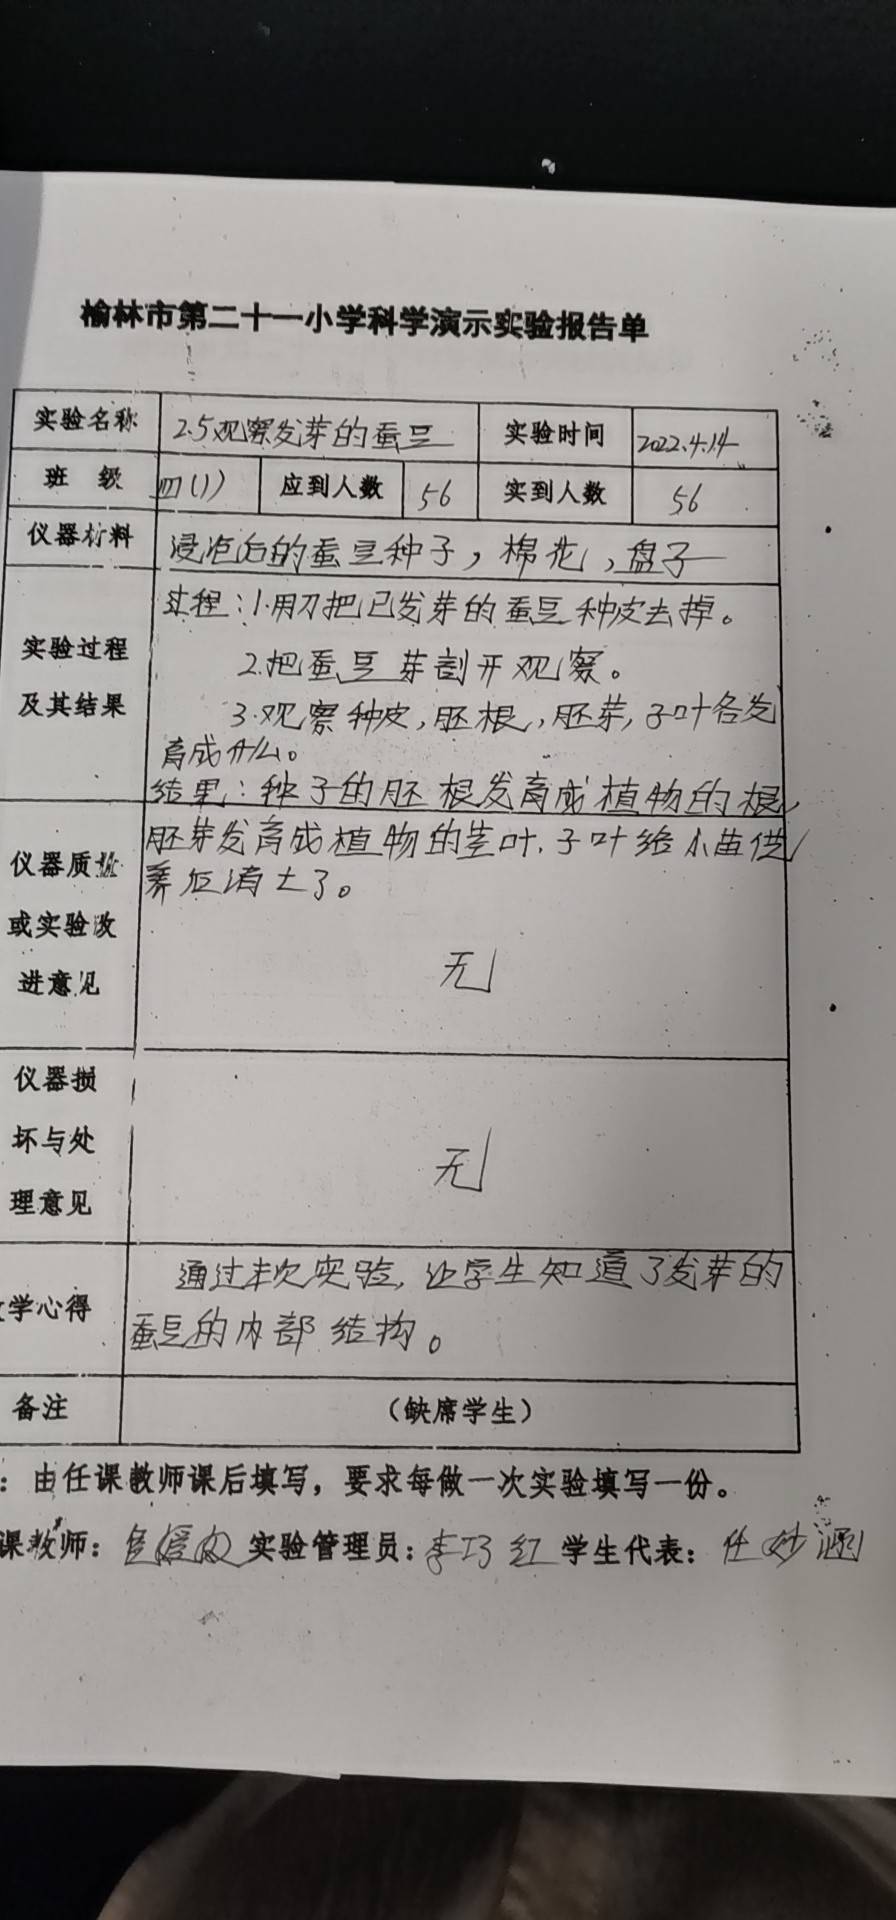 榆林市第二十一小学科学演示实验报告单
实验名称 2.5观察发芽的蚕豆 实验时间 2022.4.14
班 级 四(1) 应到人数 56 实到人数 56
仪器材料 浸泡后的蚕豆种子，棉花，盘子
实验过程
及其结果
过程：1.用刀把已发芽的蚕豆种皮去掉。
2.把蚕豆芽剖开观察。
3.观察种皮，胚根，胚芽，子叶各发
育成什么。
结果：种子的胚根发育成植物的根，
胚芽发育成植物的茎叶.子叶给小苗供
养后消亡了。
仪器质量
或实验改
进意见
无
仪器损
坏与处
理意见
无
学心得
通过本次实验，让学生知道了发芽的
蚕豆的内部结构。
备注 （缺席学生）
：由任课教师课后填写，要求每做一次实验填写一份。
课教师： 实验管理员：李巧红 学生代表：任妙涵